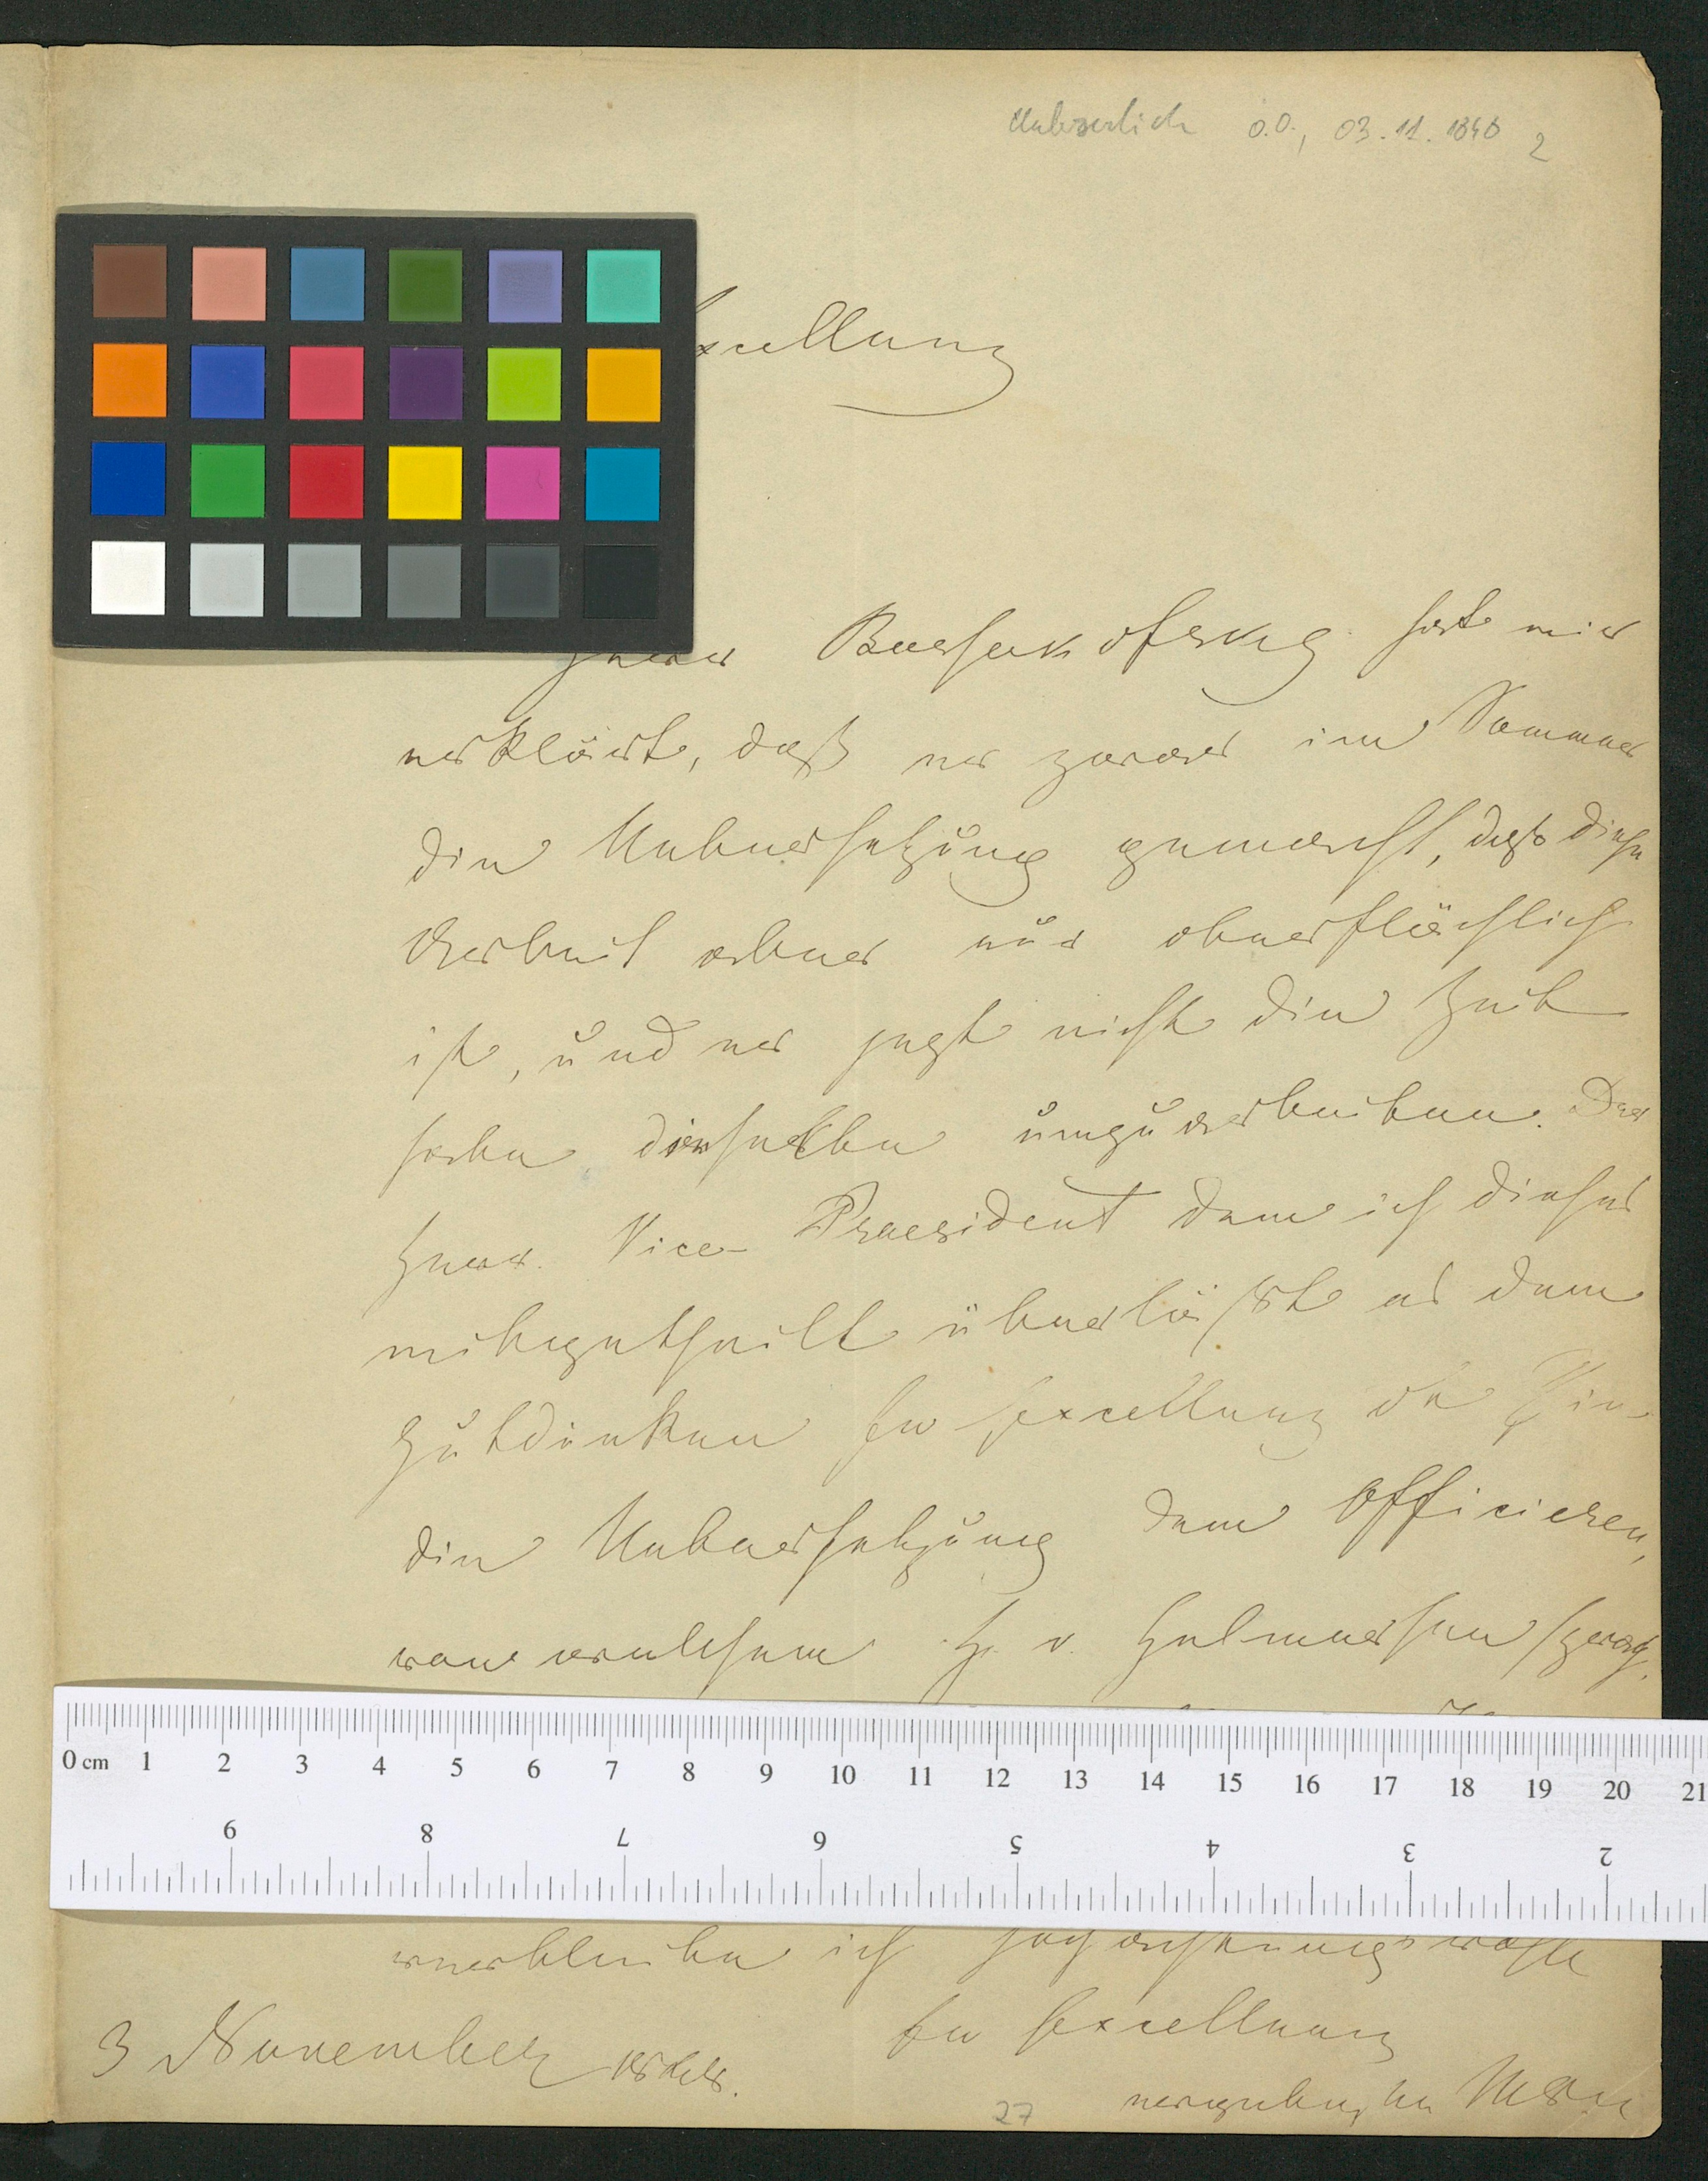 o.O., 03.11.1848 2
Excellenz
Herr hat mir
erklärt, daß er zwar im Sommer
die Uebersetzung gemacht, daß diese
Arbeit aber nur oberflächlich
ist, und er jetzt nicht die Zeit
habe dieselbe umzuarbeiten. Der
Herr Vice-Praesident dem ich dieses
mitgetheilt überläßt es dem
Gutdünken Ew Excellenz ob Sie
die Uebersetzung dem Officieren,
von welchem H. v. Helmersen sprach,
0 cm 1 2 3 4 5 6 7 8 9 10 11 12 13 14 15 16 17 18 19 20 21
9 8 7 6 5 4 3 2
verbleibe ich hochachtungsvoll
Ew Excellenz
3 November
ergebenster
27